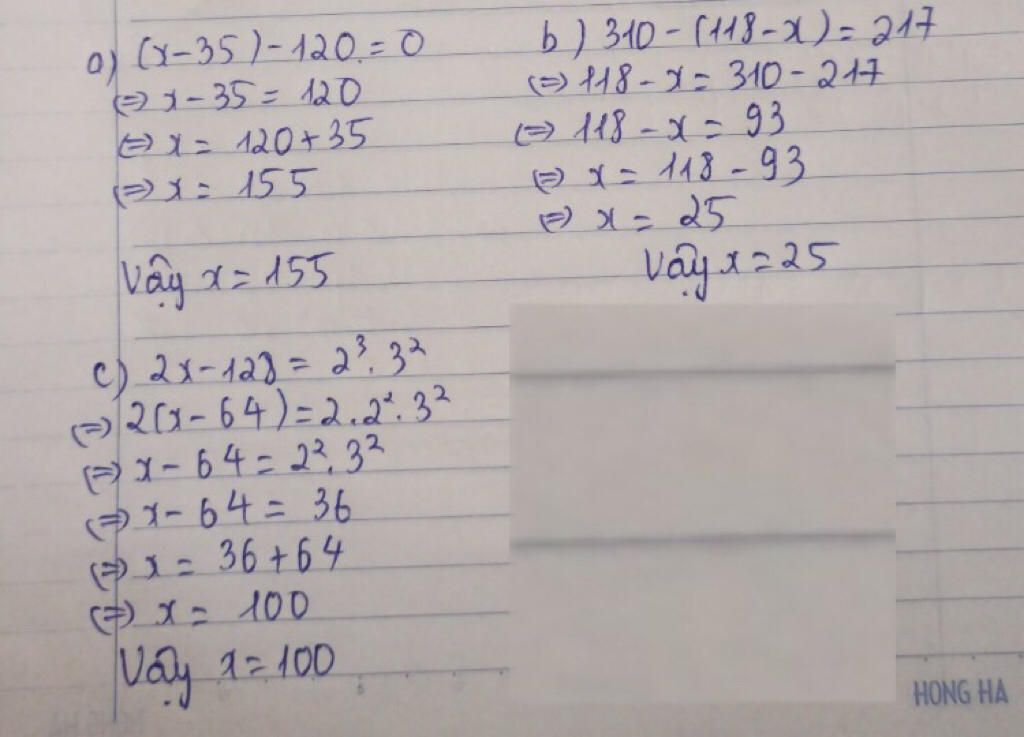 a) (x-35)-120=0
⇔ x-35=120
⇔ x= 120+35
⇔ x= 155
Vậy x=155
b) 310-(118-x)=217
⇔ 118-x=310-217
⇔ 118-x=93
⇔ x=118-93
⇔ x= 25
Vậy x=25
c) 2x-128= 2³.3²
⇔ 2(x-64)=2.2².3²
⇔ x-64=2².3²
⇔ x-64= 36
⇔ x= 36+64
⇔ x= 100
Vậy x=100
HONG HA